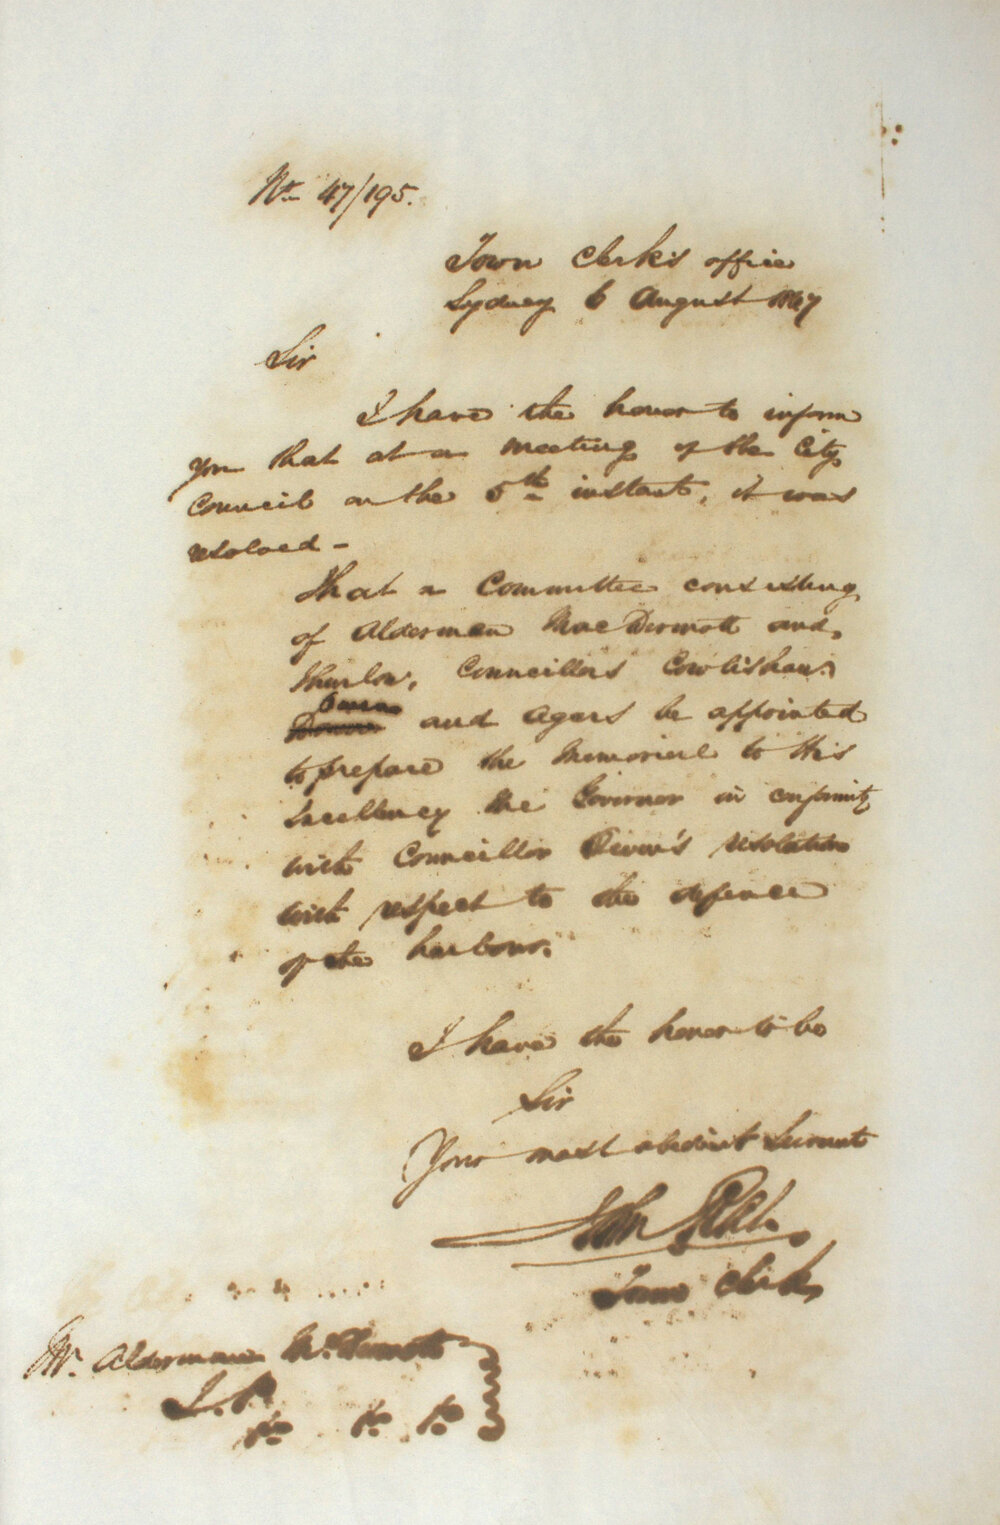 No 47/195.
Town Clerk's office
Sydney 6 August 1847
Sir
I have the honor to inform
you that at a meeting of the City
Council on the 5th instant, it was
resolved -
That a Committee consisting
of Aldermen MacDermott and
Thurlow, Councillors Cowlishaw
and Agars be appointed
to prepare the Memorial to His
Excellency the Governor in conformity
with Councillor resolution
with respect to the defence
of the harbour.
I have the honor to be
Sir
Your most obedient Servant
John
Town Clerk
Mr. Alderman McDermott
J.P.